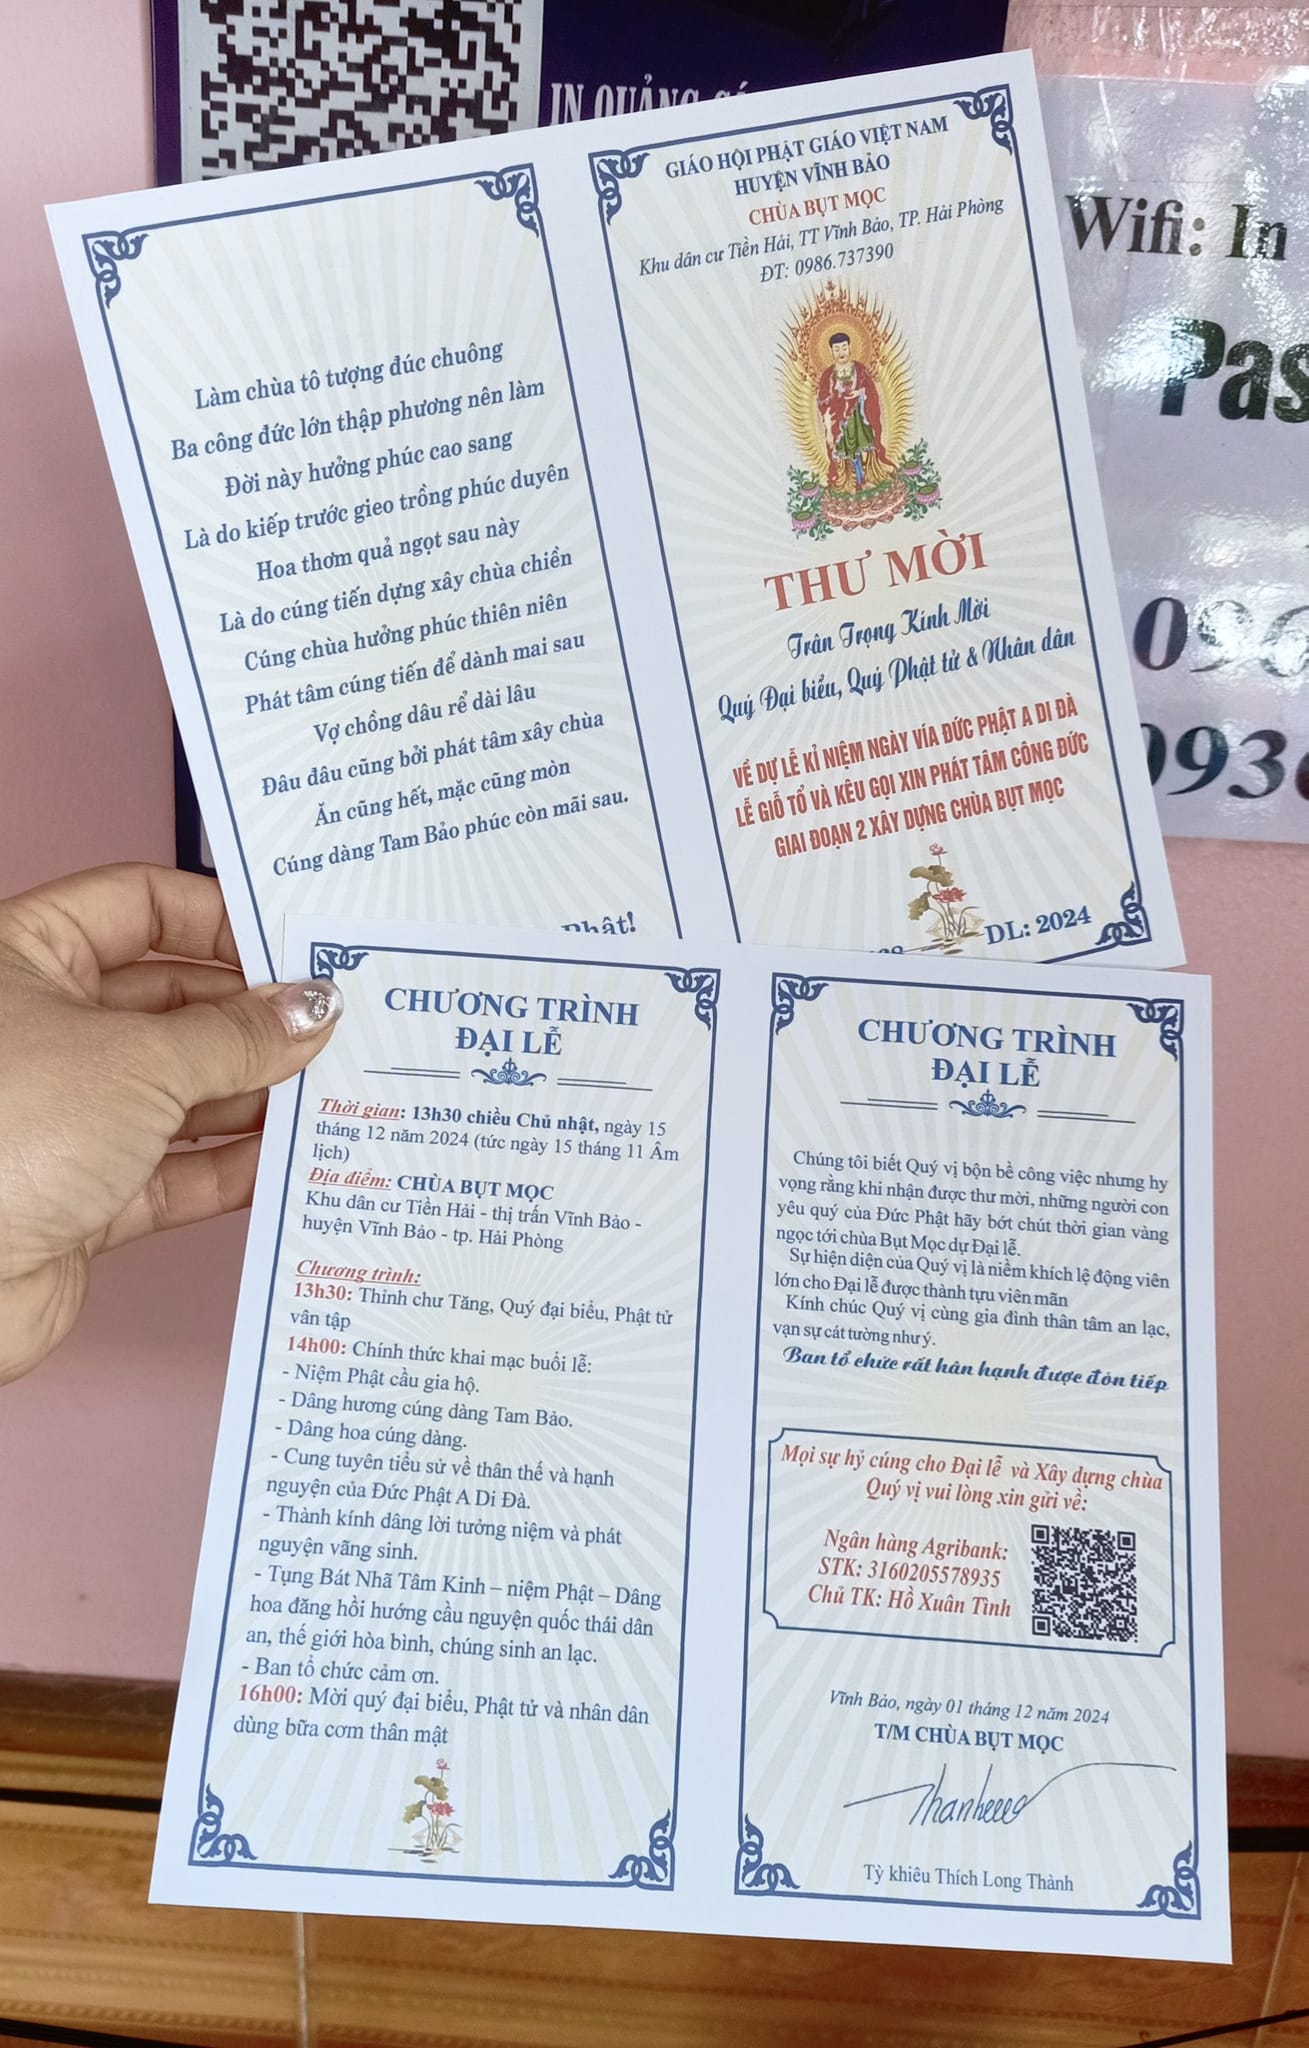 IN QUẢNG
Wifi: In
Pas
096
093
Làm chùa tô tượng đúc chuông
Ba công đức lớn thập phương nên làm
Đời này hưởng phúc cao sang
Là do kiếp trước gieo trồng phúc duyên
Hoa thơm quả ngọt sau này
Là do cúng tiến dựng xây chùa chiền
Cúng chùa hưởng phúc thiên niên
Phát tâm cúng tiến để dành mai sau
Vợ chồng dâu rể dài lâu
Đâu đâu cũng bởi phát tâm xây chùa
Ăn cũng hết, mặc cũng mòn
Cúng dàng Tam Bảo phúc còn mãi sau.
Phật!
GIÁO HỘI PHẬT GIÁO VIỆT NAM
HUYỆN VĨNH BẢO
CHÙA BỤT MỌC
Khu dân cư Tiền Hải, TT Vĩnh Bảo, TP. Hải Phòng
ĐT: 0986.737390
THƯ MỜI
Trân Trọng Kính Mời
Quý Đại biểu, Quý Phật tử & Nhân dân
VỀ DỰ LỄ KỈ NIỆM NGÀY VÍA ĐỨC PHẬT A DI ĐÀ
LỄ GIỖ TỔ VÀ KÊU GỌI XIN PHÁT TÂM CÔNG ĐỨC
GIAI ĐOẠN 2 XÂY DỰNG CHÙA BỤT MỌC
DL: 2024
CHƯƠNG TRÌNH
ĐẠI LỄ
Thời gian: 13h30 chiều Chủ nhật, ngày 15
tháng 12 năm 2024 (tức ngày 15 tháng 11 Âm
lịch)
Địa điểm: CHÙA BỤT MỌC
Khu dân cư Tiền Hải - thị trấn Vĩnh Bảo -
huyện Vĩnh Bảo - tp. Hải Phòng
Chương trình:
13h30: Thỉnh chư Tăng, Quý đại biểu, Phật tử
vân tập
14h00: Chính thức khai mạc buổi lễ:
- Niệm Phật cầu gia hộ.
- Dâng hương cúng dàng Tam Bảo.
- Dâng hoa cúng dàng.
- Cung tuyên tiểu sử về thân thế và hạnh
nguyện của Đức Phật A Di Đà.
- Thành kính dâng lời tưởng niệm và phát
nguyện vãng sinh.
- Tụng Bát Nhã Tâm Kinh – niệm Phật – Dâng
hoa đăng hồi hướng cầu nguyện quốc thái dân
an, thế giới hòa bình, chúng sinh an lạc.
- Ban tổ chức cảm ơn.
16h00: Mời quý đại biểu, Phật tử và nhân dân
dùng bữa cơm thân mật
CHƯƠNG TRÌNH
ĐẠI LỄ
Chúng tôi biết Quý vị bộn bề công việc nhưng hy
vọng rằng khi nhận được thư mời, những người con
yêu quý của Đức Phật hãy bớt chút thời gian vàng
ngọc tới chùa Bụt Mọc dự Đại lễ.
Sự hiện diện của Quý vị là niềm khích lệ động viên
lớn cho Đại lễ được thành tựu viên mãn
Kính chúc Quý vị cùng gia đình thân tâm an lạc,
vạn sự cát tường như ý.
Ban tổ chức rất hân hạnh được đón tiếp
Mọi sự hỷ cúng cho Đại lễ và Xây dựng chùa
Quý vị vui lòng xin gửi về:
Ngân hàng Agribank:
STK: 3160205578935
Chủ TK: Hồ Xuân Tình
Vĩnh Bảo, ngày 01 tháng 12 năm 2024
T/M CHÙA BỤT MỌC
Tỳ khiêu Thích Long Thành